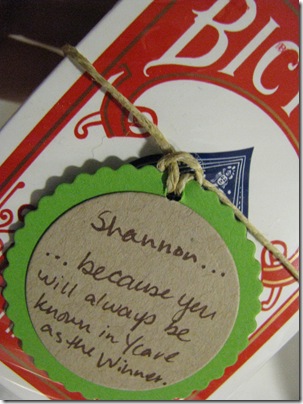 BIC
Shannon...
... because you
will always be
known in Ycare
as the Winner.